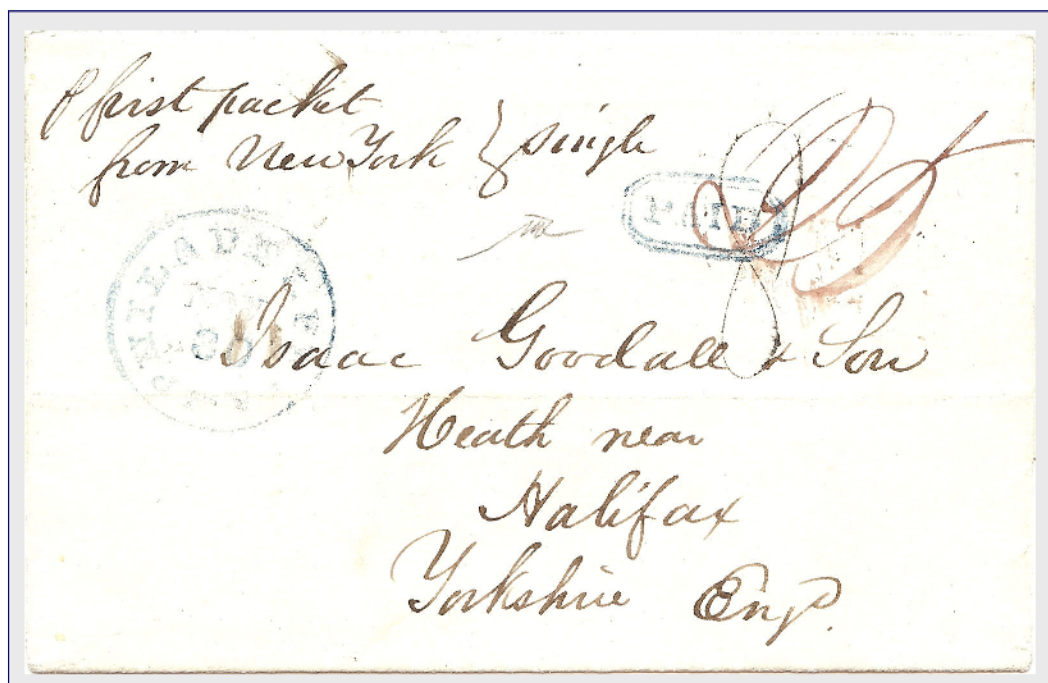 P first packet
from New York } single
PAID
25
8
PHILADELPHIA
Isaac Goodall & Son
Heath near
Halifax
Yorkshire Engd.